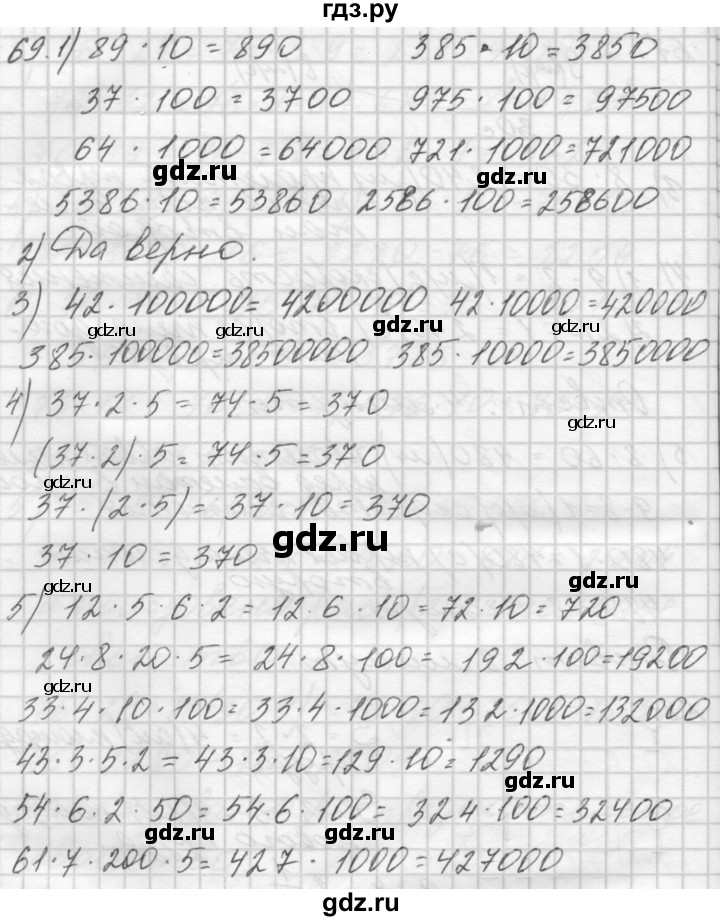 гдз.ру
69.1) 89 · 10 = 890 385 · 10 = 3850
37 · 100 = 3700 975 · 100 = 97500
64 · 1000 = 64000 721 · 1000 = 721000
gdz.ru gdz.ru
5386 · 10 = 53860 2586 · 100 = 258600
2) Да верно.
3) 42 · 100000 = 4200000 42 · 10000 = 420000
gdz.ru gdz.ru gdz.ru gdz.ru
385 · 100000 = 38500000 385 · 10000 = 3850000
4) 37 · 2 · 5 = 74 · 5 = 370
gdz.ru
(37 · 2) · 5 = 74 · 5 = 370
gdz.ru
37 · (2 · 5) = 37 · 10 = 370
gdz.ru
37 · 10 = 370
gdz.ru gdz.ru
5) 12 · 5 · 6 · 2 = 12 · 6 · 10 = 72 · 10 = 720
24 · 8 · 20 · 5 = 24 · 8 · 100 = 192 · 100 = 19200
gdz.ru
33 · 4 · 10 · 100 = 33 · 4 · 1000 = 132 · 1000 = 132000
43 · 3 · 5 · 2 = 43 · 3 · 10 = 129 · 10 = 1290
gdz.ru
54 · 6 · 2 · 50 = 54 · 6 · 100 = 324 · 100 = 32400
gdz.ru gdz.ru
61 · 7 · 200 · 5 = 427 · 1000 = 427000
gdz.ru